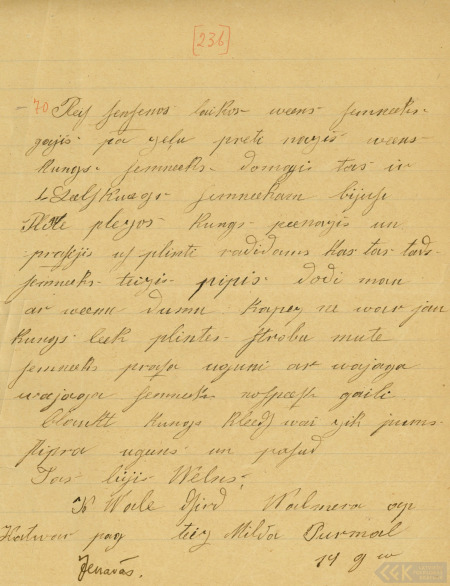 [236]
70 Reiſ ſenſenos laikos weens ſemneeks
gajis pa zeļu preti nazis weens
kungs ſemneeks domajis tas ir
Leelſkungs ſemneekam bijuſi
plinte plezos kungs peenazis un
praſijis uſ plinti radidams kas tas tads
ſemneeks teizis pipis dodi man
ar weenu dumu kapez ne war jau
kungs leek plintes ſtrobu mute
ſemneeks praſa uguni ar wajaga
wajaga ſemneeks noſpeeſt gaili
blaukt kungs kleeds wai zik jums
ſtipra uguns un paſud
Tas bijis Welns.
K Wale dſird Walmera ap
Katwar pag teiz Milda Purmal
14 g w